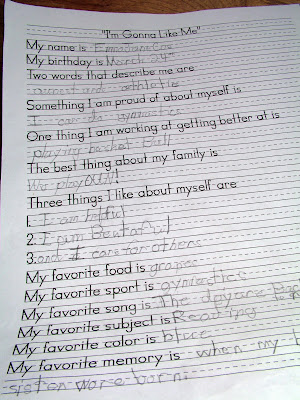 "I'm Gonna Like Me"
My name is
My birthday is March
Two words that describe me are
sweet and athletic
Something I am proud of about myself is
I can do
One thing I am working at getting better at is
playing basket Ball
The best thing about my family is
We play
Three things I like about myself are
1. I am helful
2. I am
3. and I care for others
My favorite food is grapes
My favorite sport is
My favorite song is The
My favorite subject is Reading
My favorite color is blue
My favorite memory is when my